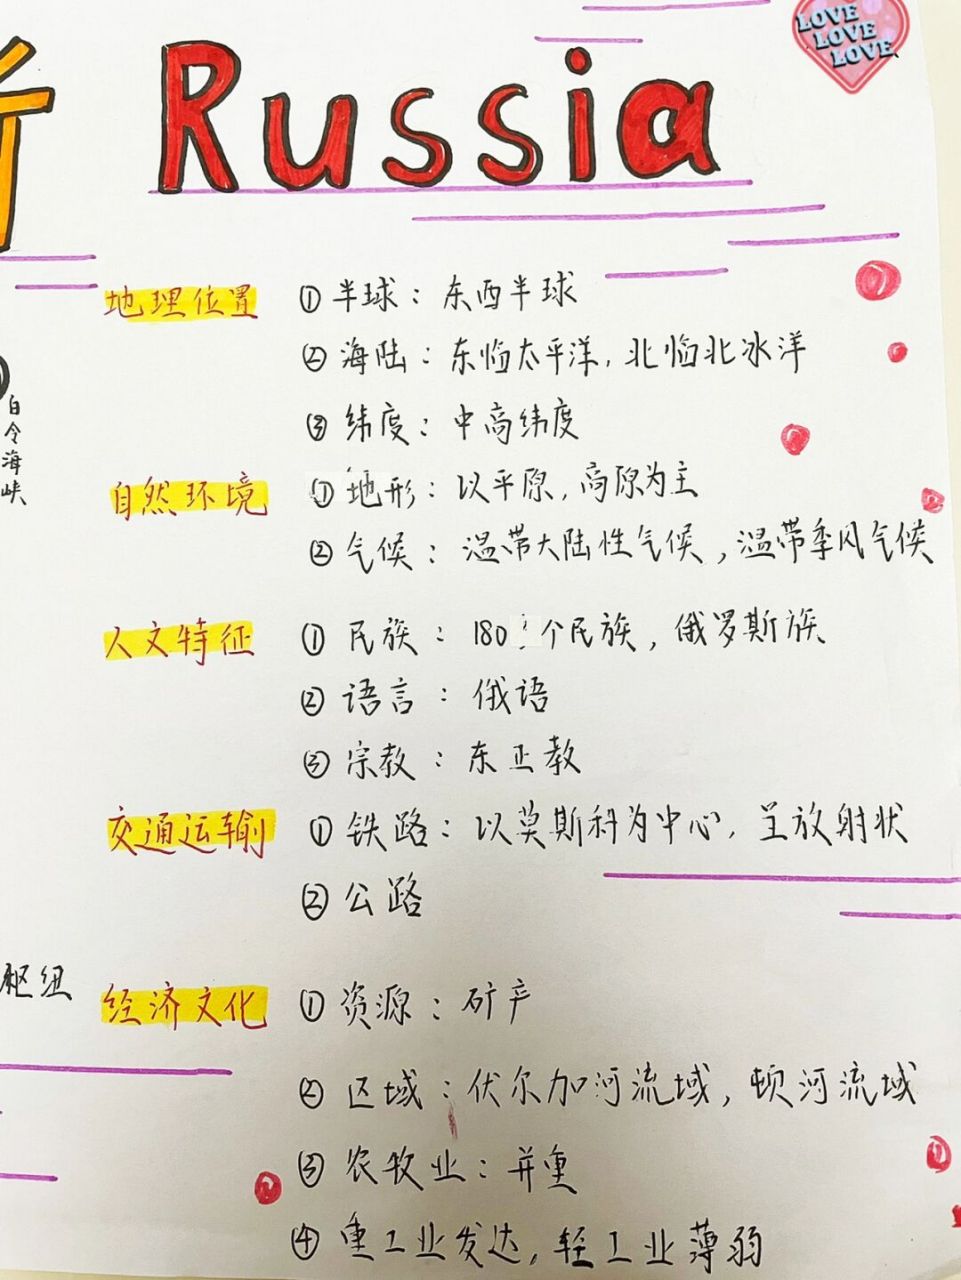 Russia
LOVE
LOVE
LOVE
地理位置 ① 半球：东西半球
② 海陆：东临太平洋，北临北冰洋
③ 纬度：中高纬度
白令海峡
自然环境 ① 地形：以平原，高原为主
② 气候：温带大陆性气候，温带季风气候
人文特征 ① 民族：180 个民族，俄罗斯族
② 语言：俄语
③ 宗教：东正教
交通运输 ① 铁路：以莫斯科为中心，呈放射状
② 公路
枢纽
经济文化 ① 资源：矿产
② 区域：伏尔加河流域，顿河流域
③ 农牧业：并重
④ 重工业发达，轻工业薄弱